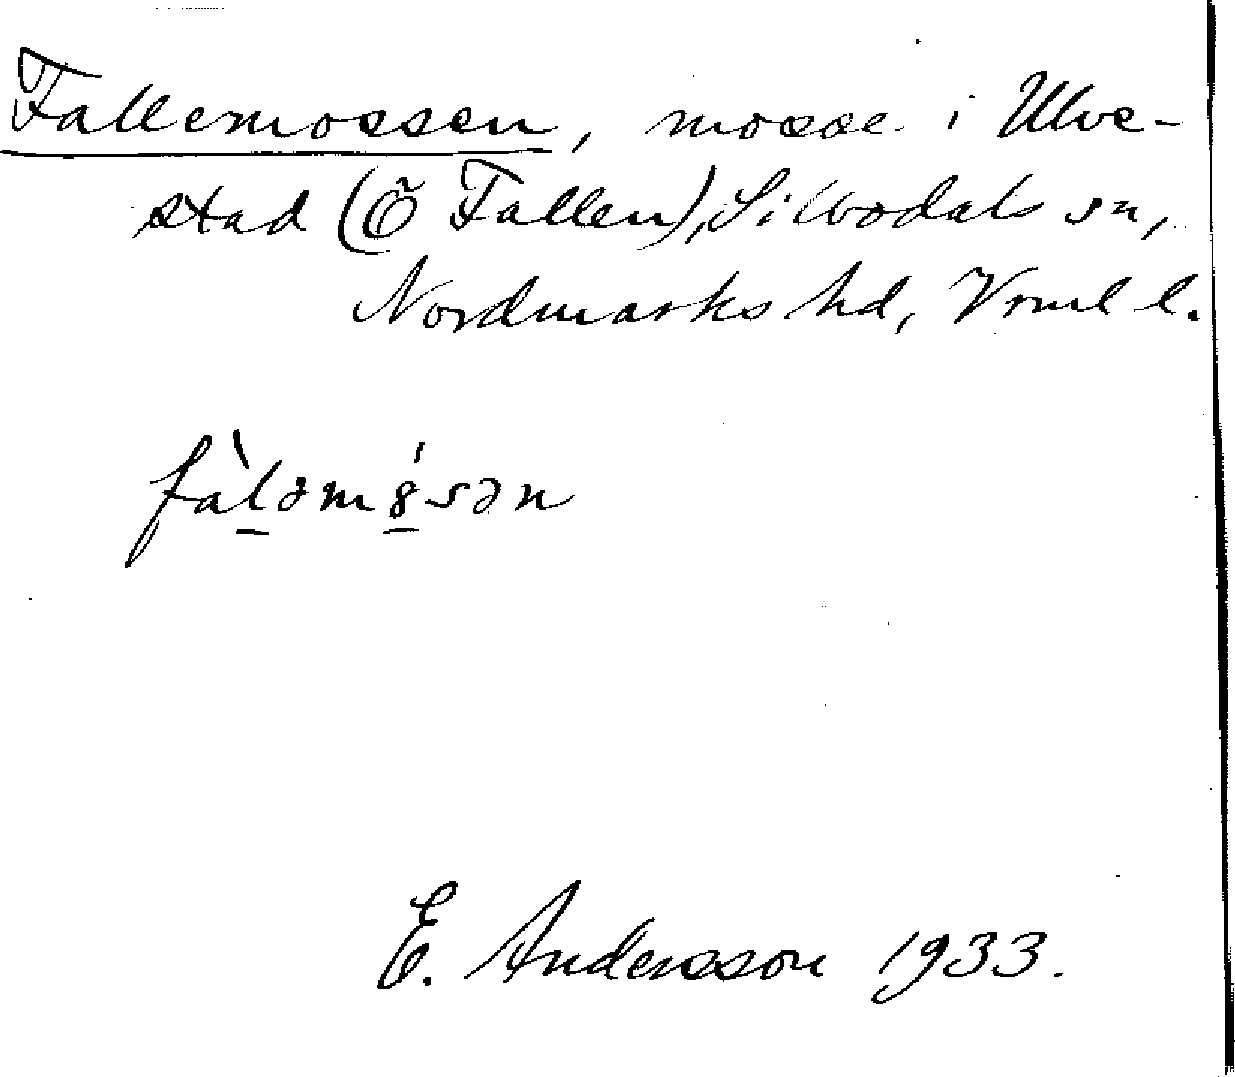 Fallemossen, mosse i Ulve-
stad (Ö Fallen), Silbodals sn,
Nordmarks hd, Vrml l.
fàləm8́sən
E. Andersson 1933.